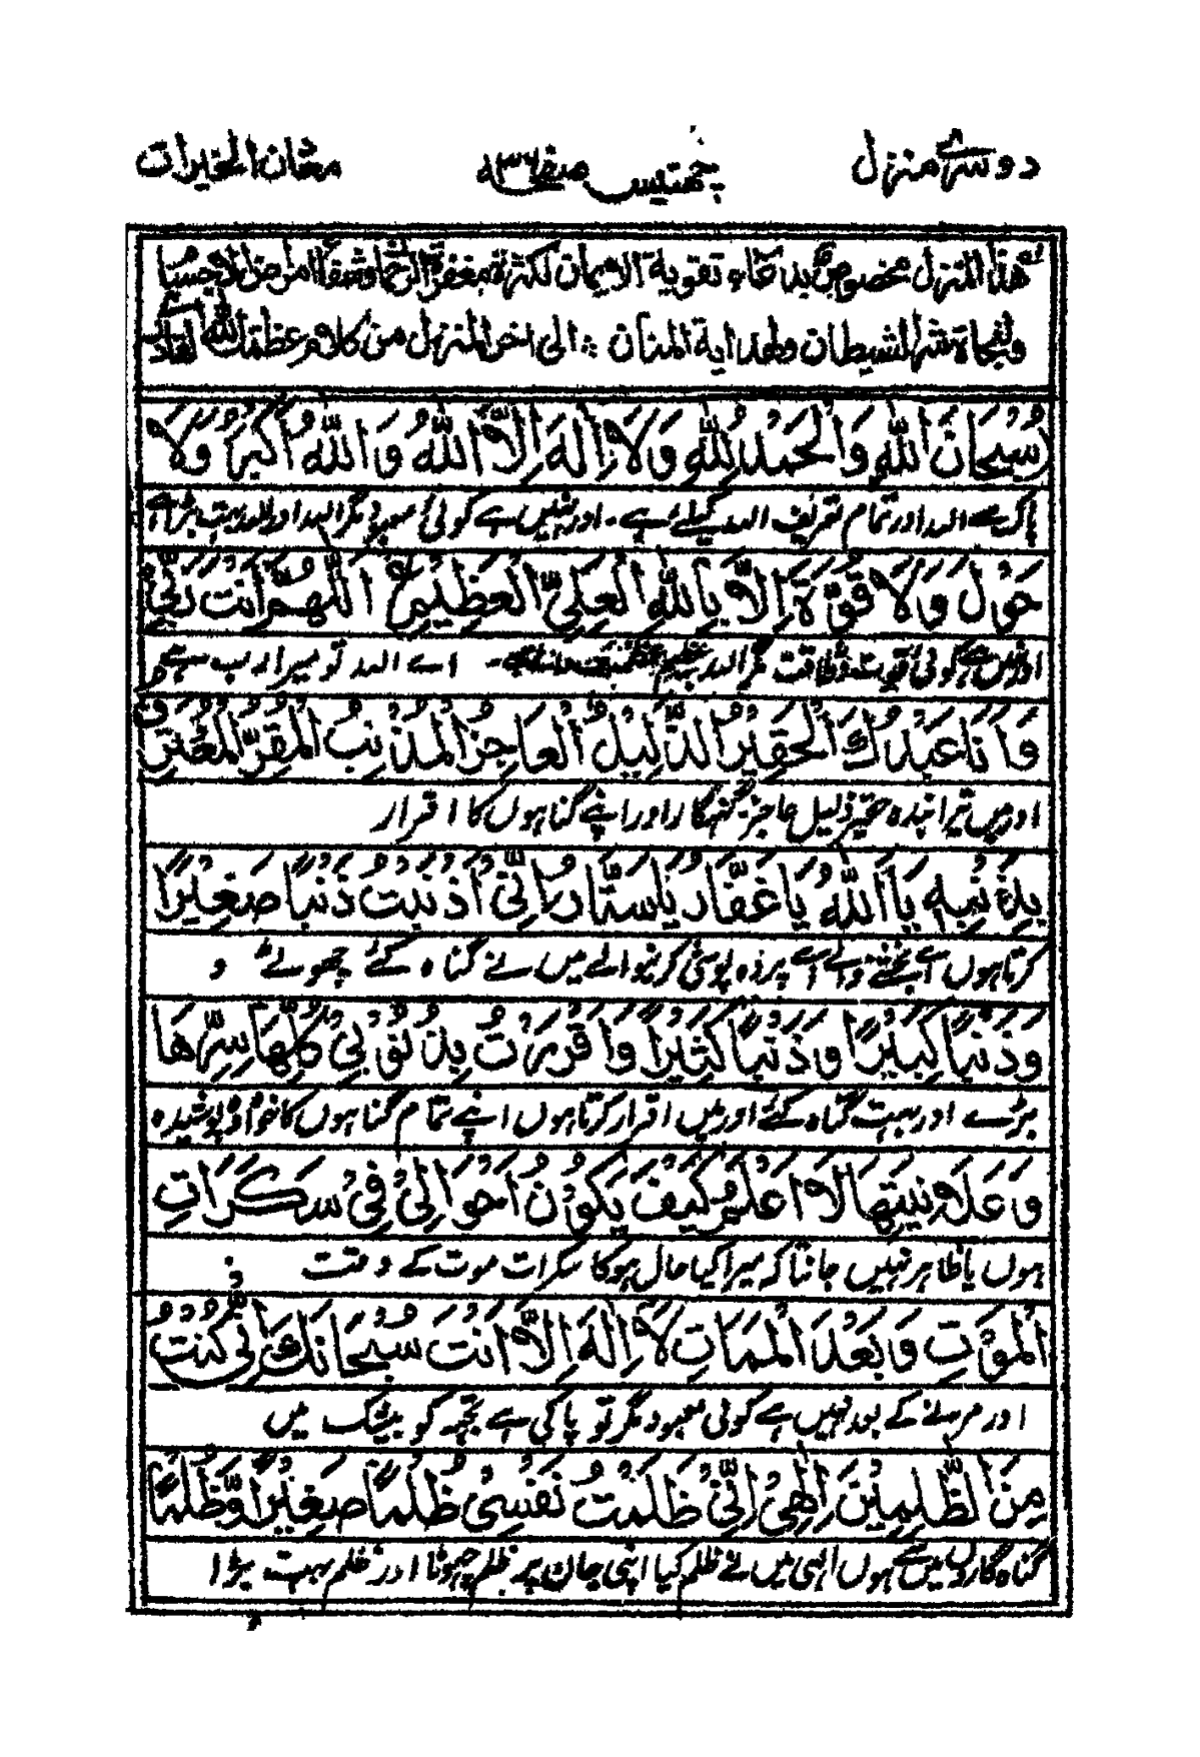 دوسرے منزل چھتیس صفحہ ۳۶ مغان الخیرات
هذا المنزل مخصوص بدعاء تقوية الايمان لكثرة بمغفرة الرحمان وشفاء من
ولنجاة شر الشيطان ولهداية المنان ؞ الى اخر المنزل من كلام عظمة الله تعالى
سُبْحَانَ اللهِ وَالْحَمْدُ لِلّٰهِ وَلَا اِلٰهَ اِلَّا اللهُ وَاللهُ اَكْبَرُ وَلَا
پاک ہے اللہ اور تمام تعریف اللہ کیلئے ہے ۔ اور نہیں ہے کوئی معبود مگر اللہ اور اللہ بہت بڑا ہے
حَوْلَ وَلَا قُوَّةَ اِلَّا بِاللهِ الْعَلِيِّ الْعَظِيْمِ اَللّٰهُمَّ اَنْتَ رَبِّيْ
اور نہیں ہے کوئی قوت و طاقت مگر اللہ ۔ اے اللہ تو میرا رب ہے
وَاَنَا عَبْدُكَ الْحَقِيْرُ الذَّلِيْلُ الْعَاجِزُ الْمُذْنِبُ الْمُقِرُّ الْمُعْتَرِفُ
اور میں تیرا بندہ حقیر ذلیل عاجز گنہگار اور اپنے گناہوں کا اقرار
بِذَنْبِهِ يَا اَللهُ يَا غَفَّارُ يَا سَتَّارُ اِنِّيْ اَذْنَبْتُ ذَنْبًا صَغِيْرًا
کرتا ہوں اے بخشنے والے اے پردہ پوشی کرنیوالے میں نے گناہ کئے چھوٹے و
وَذَنْبًا كَبِيْرًا وَذَنْبًا كَثِيْرًا وَاَقْرَرْتُ بِذُنُوْبِيْ كُلِّهَا سِرِّهَا
بڑے اور بہت گناہ کئے اور میں اقرار کرتا ہوں اپنے تمام گناہوں کا خواہ پوشیدہ
وَعَلَانِيَتِهَا لَا اَعْلَمُ كَيْفَ يَكُوْنُ اَحْوَالِيْ فِيْ سَكَرَاتِ
ہوں یا ظاہر نہیں جانتا کہ میرا کیا حال ہوگا سکرات موت کے وقت
الْمَوْتِ وَبَعْدَ الْمَمَاتِ لَا اِلٰهَ اِلَّا اَنْتَ سُبْحَانَكَ اِنِّيْ كُنْتُ
اور مرنے کے بعد نہیں ہے کوئی معبود مگر تو پاکی ہے تجھ کو بیشک میں
مِنَ الظّٰلِمِيْنَ اِلٰهِيْ اِنِّيْ ظَلَمْتُ نَفْسِيْ ظُلْمًا صَغِيْرًا وَّظُلْمًا
گناہگاروں میں سے ہوں الہی میں نے ظلم کیا اپنی جان پر ظلم چھوٹا اور ظلم بہت بڑا